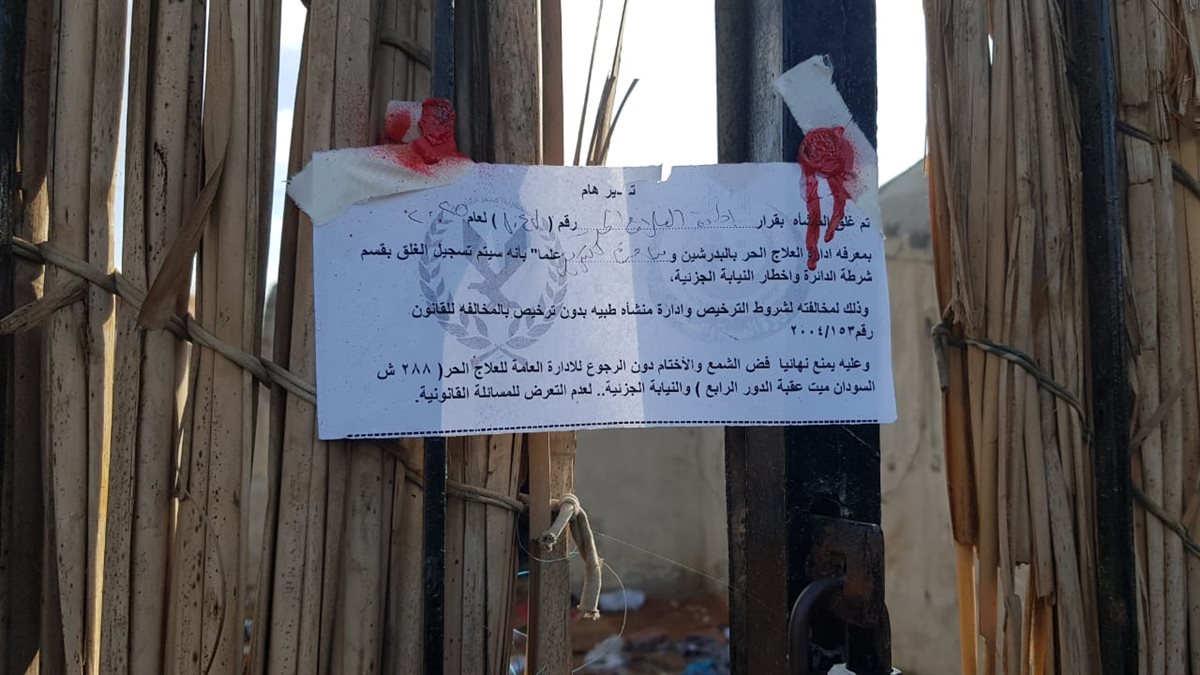 هام
تم غلق المنشأه بقرار ادارة العلاج الحر رقم ( ) لعام
بمعرفه ادارة العلاج الحر بالبدرشين و علما" بأنه سيتم تسجيل الغلق بقسم
شرطة الدائرة واخطار النيابة الجزئية،
وذلك لمخالفته لشروط الترخيص وادارة منشأه طبيه بدون ترخيص بالمخالفه للقانون
رقم١٥٣/٢٠٠٤
وعليه يمنع نهائيا فض الشمع والأختام دون الرجوع للادارة العامة للعلاج الحر( ٢٨٨ ش
السودان ميت عقبة الدور الرابع ) والنيابة الجزئية.. لعدم التعرض للمسائلة القانونية.